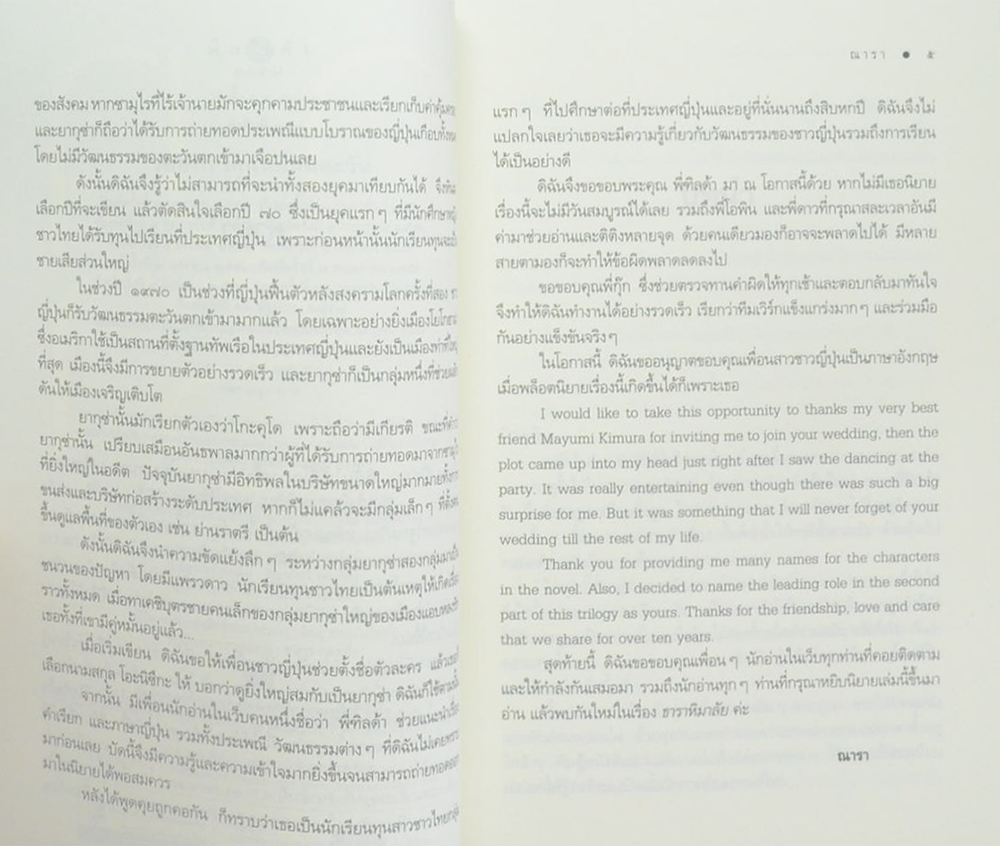 ของสังคม หากซามูไรที่ไร้เจ้านายมักจะคุกคามประชาชนและเรียกเก็บค่าคุ้ม
และยากูซ่าก็ถือว่าได้รับการถ่ายทอดประเพณีแบบโบราณของญี่ปุ่นเกือบทั้ง
โดยไม่มีวัฒนธรรมของตะวันตกเข้ามาเจือปนเลย
ดังนั้นดิฉันจึงรู้ว่าไม่สามารถที่จะนำทั้งสองยุคมาเทียบกันได้ จึง
เลือกปีที่จะเขียน แล้วตัดสินใจเลือกปี ๗๐ ซึ่งเป็นยุคแรกๆ ที่มีนักศึกษา
ชาวไทยได้รับทุนไปเรียนที่ประเทศญี่ปุ่น เพราะก่อนหน้านั้นนักเรียนทุนจะ
ชายเสียส่วนใหญ่
ในช่วงปี ๑๙๗๐ เป็นช่วงที่ญี่ปุ่นฟื้นตัวหลังสงครามโลกครั้งที่สอง
ญี่ปุ่นก็รับวัฒนธรรมตะวันตกเข้ามามากแล้ว โดยเฉพาะอย่างยิ่งเมือง
ซึ่งอเมริกาใช้เป็นสถานที่ตั้งฐานทัพเรือในประเทศญี่ปุ่นและยังเป็นเมือง
ที่สุด เมืองนี้จึงมีการขยายตัวอย่างรวดเร็ว และยากูซ่าก็เป็นกลุ่มหนึ่งที่ช่วย
ดันให้เมืองเจริญเติบโต
ยากูซ่านั้นมักเรียกตัวเองว่าโกะคุโด เพราะถือว่ามีเกียรติ ขณะที่
ยากูซ่านั้น เปรียบเสมือนอันธพาลมากกว่าผู้ที่ได้รับการถ่ายทอดมาจาก
ที่ยิ่งใหญ่ในอดีต ปัจจุบันยากูซ่ามีอิทธิพลในบริษัทขนาดใหญ่มากมายทั้ง
ขนส่งและบริษัทก่อสร้างระดับประเทศ หากก็ไม่แคล้วจะมีกลุ่มเล็กๆ ที่ตั้ง
ขึ้นดูแลพื้นที่ของตัวเอง เช่น ย่านราตรี เป็นต้น
ดังนั้นดิฉันจึงนำความขัดแย้งลึกๆ ระหว่างกลุ่มยากูซ่าสองกลุ่ม
ชนวนของปัญหา โดยมีแพรวดาว นักเรียนทุนชาวไทยเป็นต้นเหตุให้เกิด
ราวทั้งหมด เมื่อทาเคชิบุตรชายคนเล็กของกลุ่มยากูซ่าใหญ่ของเมืองแอบ
เธอทั้งที่เขามีคู่หมั้นอยู่แล้ว...
เมื่อเริ่มเขียน ดิฉันขอให้เพื่อนชาวญี่ปุ่นช่วยตั้งชื่อตัวละคร แล้ว
เลือกนามสกุล โอะนิซึกะ ให้ บอกว่าดูยิ่งใหญ่สมกับเป็นยากูซ่า ดิฉันก็ใช้
จากนั้น มีเพื่อนนักอ่านในเว็บคนหนึ่งชื่อว่า พี่ทิลด้า ช่วยแนะนำ
คำเรียก และภาษาญี่ปุ่น รวมทั้งประเพณี วัฒนธรรมต่างๆ ที่ดิฉันไม่เคย
มาก่อนเลย บัดนี้จึงมีความรู้และความเข้าใจมากยิ่งขึ้นจนสามารถถ่ายทอด
มาในนิยายได้พอสมควร
หลังได้พูดคุยถูกคอกัน ก็ทราบว่าเธอเป็นนักเรียนทุนสาวชาวไทย
ณารา ● ๕
แรกๆ ที่ไปศึกษาต่อที่ประเทศญี่ปุ่นและอยู่ที่นั่นนานถึงสิบหกปี ดิฉันจึงไม่
แปลกใจเลยว่าเธอจะมีความรู้เกี่ยวกับวัฒนธรรมของชาวญี่ปุ่นรวมถึงการเรียน
ได้เป็นอย่างดี
ดิฉันจึงขอขอบพระคุณ พี่ทิลด้า มา ณ โอกาสนี้ด้วย หากไม่มีเธอนิยาย
เรื่องนี้จะไม่มีวันสมบูรณ์ได้เลย รวมถึงพี่โอพิน และพี่ดาวที่กรุณาสละเวลาอันมี
ค่ามาช่วยอ่านและติติงหลายจุด ด้วยคนเดียวมองก็อาจจะพลาดไปได้ มีหลาย
สายตามองก็จะทำให้ข้อผิดพลาดลดลงไป
ขอขอบคุณพี่กุ๊ก ซึ่งช่วยตรวจทานคำผิดให้ทุกเช้าและตอบกลับมาทันใจ
จึงทำให้ดิฉันทำงานได้อย่างรวดเร็ว เรียกว่าทีมเวิร์กแข็งแกร่งมากๆ และร่วมมือ
กันอย่างแข็งขันจริงๆ
ในโอกาสนี้ ดิฉันขออนุญาตขอบคุณเพื่อนสาวชาวญี่ปุ่นเป็นภาษาอังกฤษ
เมื่อพล็อตนิยายเรื่องนี้เกิดขึ้นได้ก็เพราะเธอ
I would like to take this opportunity to thanks my very best
friend Mayumi Kimura for inviting me to join your wedding, then the
plot came up into my head just right after I saw the dancing at the
party. It was really entertaining even though there was such a big
surprise for me. But it was something that I will never forget of your
wedding till the rest of my life.
Thank you for providing me many names for the characters
in the novel. Also, I decided to name the leading role in the second
part of this trilogy as yours. Thanks for the friendship, love and care
that we share for over ten years.
สุดท้ายนี้ ดิฉันขอขอบคุณเพื่อนๆ นักอ่านในเว็บทุกท่านที่คอยติดตาม
และให้กำลังกันเสมอมา รวมถึงนักอ่านทุกๆ ท่านที่กรุณาหยิบนิยายเล่มนี้ขึ้นมา
อ่าน แล้วพบกันใหม่ในเรื่อง ธาราหิมาลัย ค่ะ
ณารา